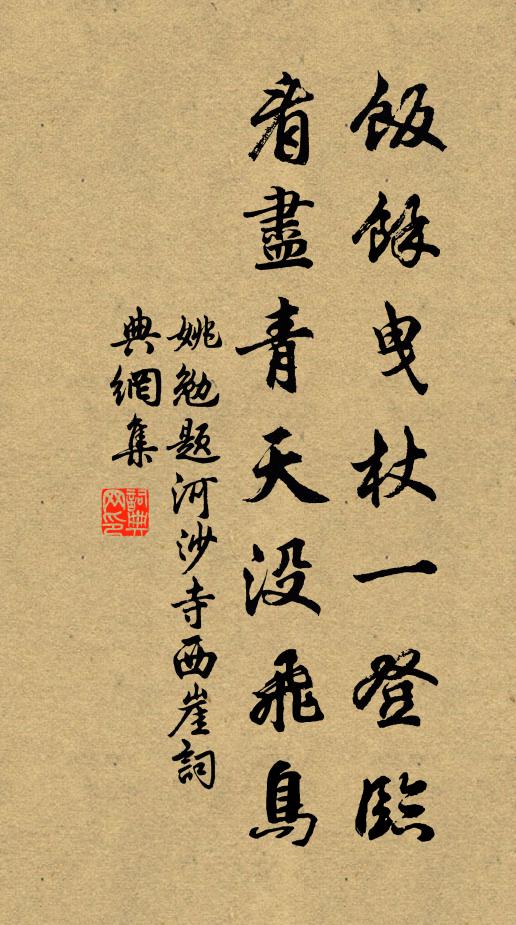 飯餘曳杖一登臨
看盡青天沒飛鳥
姚勉題河沙寺西崖詞
典網集
詞典網印